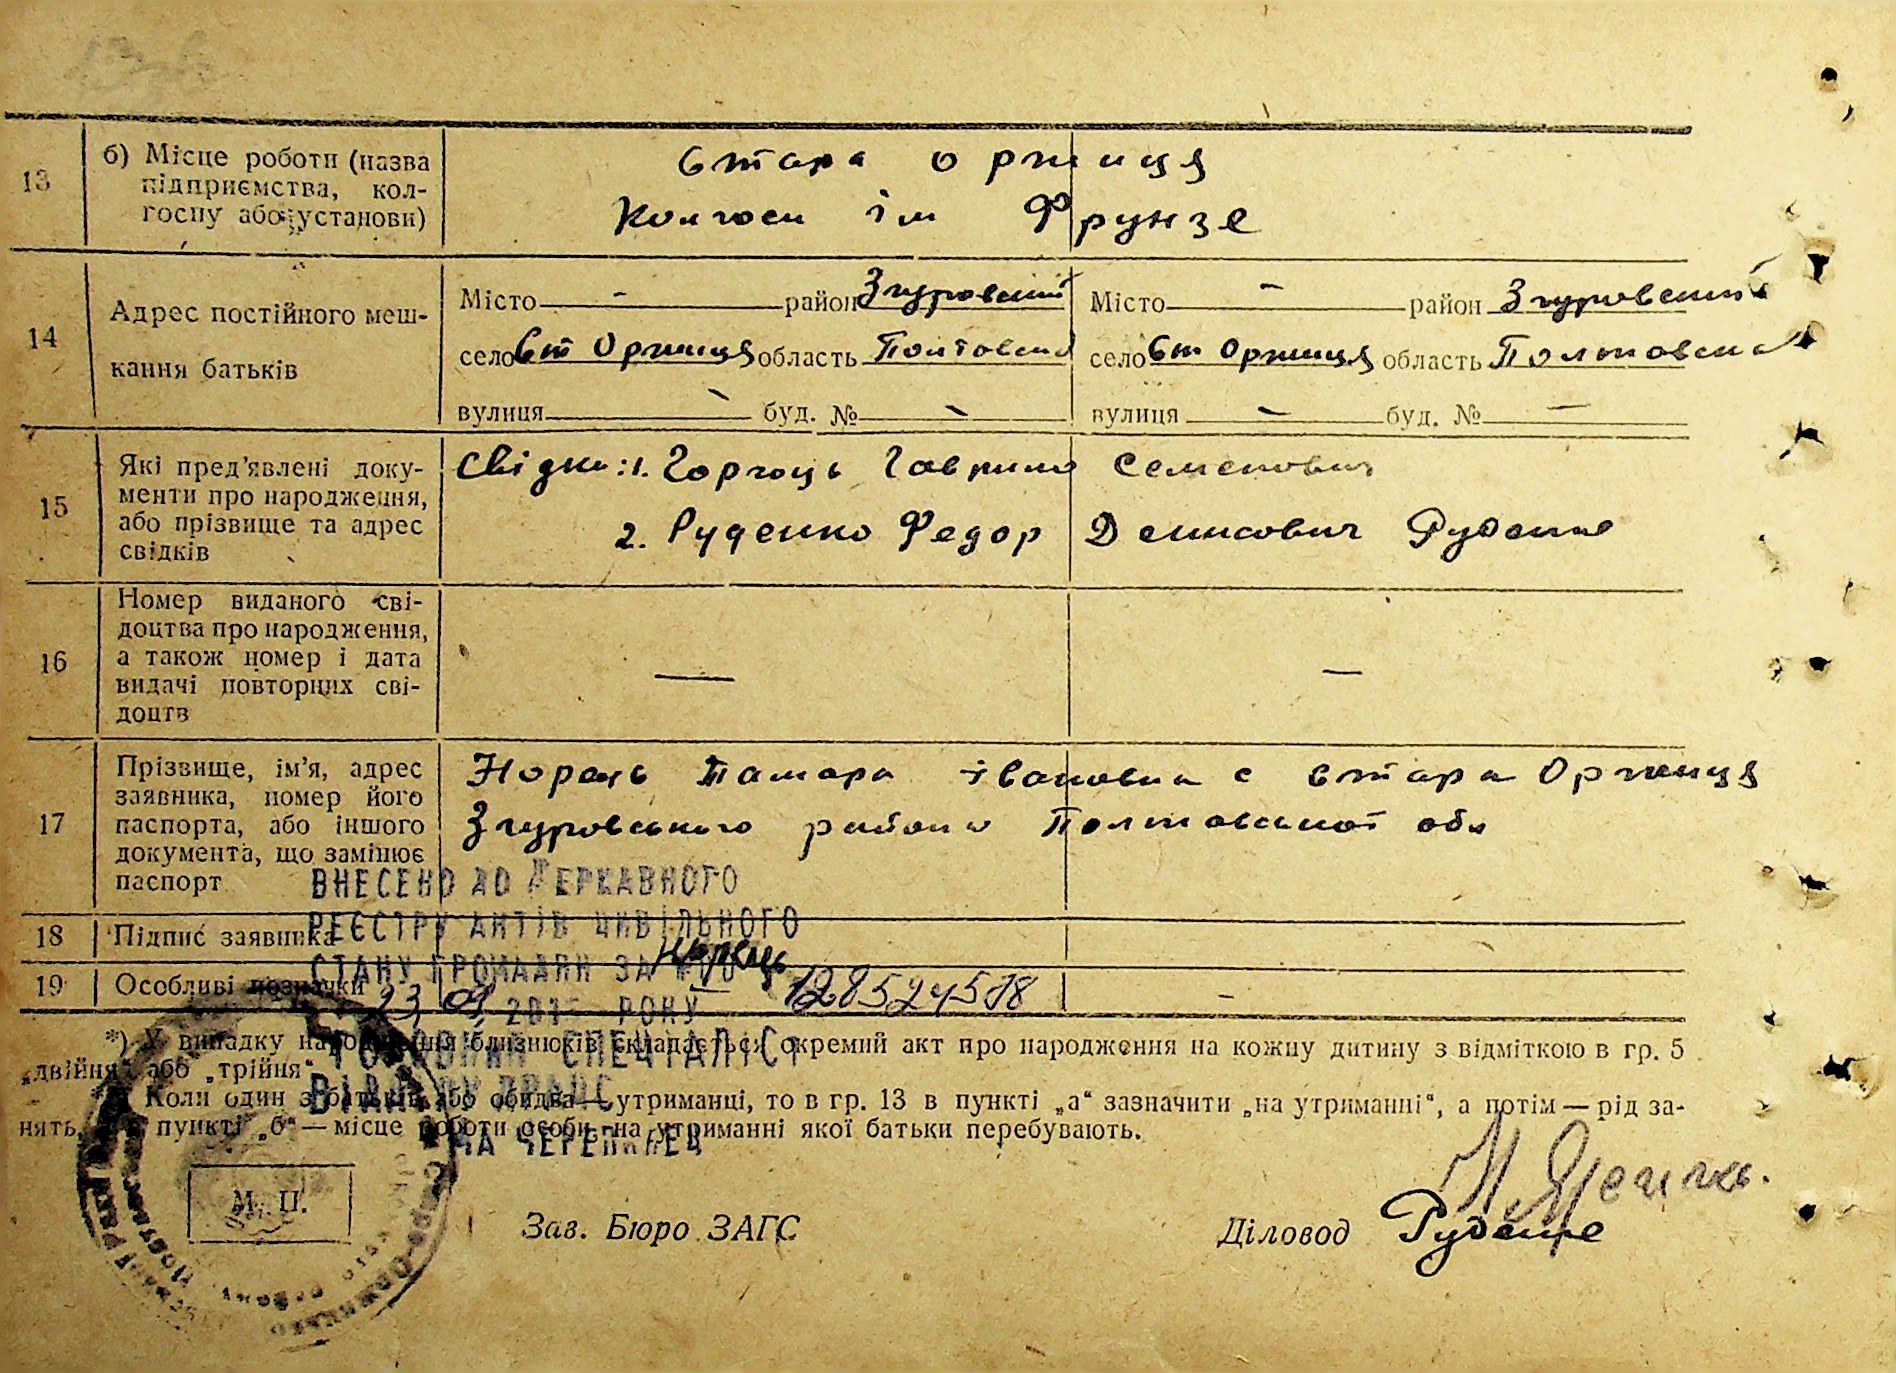 13
б) Місце роботи (назва
підприємства, кол-
госпу або установи)
Стара Оржиця
Колгосп ім Фрунзе
14
Адрес постійного меш-
кання батьків
Місто - район Згуровський
село Ст Оржиця область Полтовська
вулиця - буд. № -
Місто - район Згуровський
село Ст Оржиця область Полтовська
вулиця - буд. № -
15
Які пред'явлені доку-
менти про народження,
або прізвище та адрес
свідків
Свідки: 1. Горгоць Гаврило Семенович
2. Руденко Федор Денисович Руденко
16
Номер виданого сві-
доцтва про народження,
а також номер і дата
видачі повторних сві-
доцтв
—
—
17
Прізвище, ім'я, адрес
заявника, номер його
паспорта, або іншого
документа, що замінює
паспорт
Норець Тамара Івановна с Стара Оржиця
Згуровського району Полтовської обл
18
Підпис заявника
Норець
19
Особливі позначки
-
ВНЕСЕНО ДО ДЕРЖАВНОГО
РЕЄСТРУ АКТІВ ЦИВІЛЬНОГО
СТАНУ ГРОМАДЯН ЗА №
РОКУ
ГОЛОВНИЙ СПЕЦІАЛІСТ
ВІДДІЛУ ДРАЦС
*) У випадку народження близнюків складається окремий акт про народження на кожну дитину з відміткою в гр. 5
„двійня“ або „трійня“
Коли один з батьків або обидва — утриманці, то в гр. 13 в пункті „а“ зазначити „на утриманні“, а потім — рід за-
нять, в пункті „б“ — місце роботи особи, на утриманні якої батьки перебувають.
М. П.
Зав. Бюро ЗАГС
Діловод Руденко